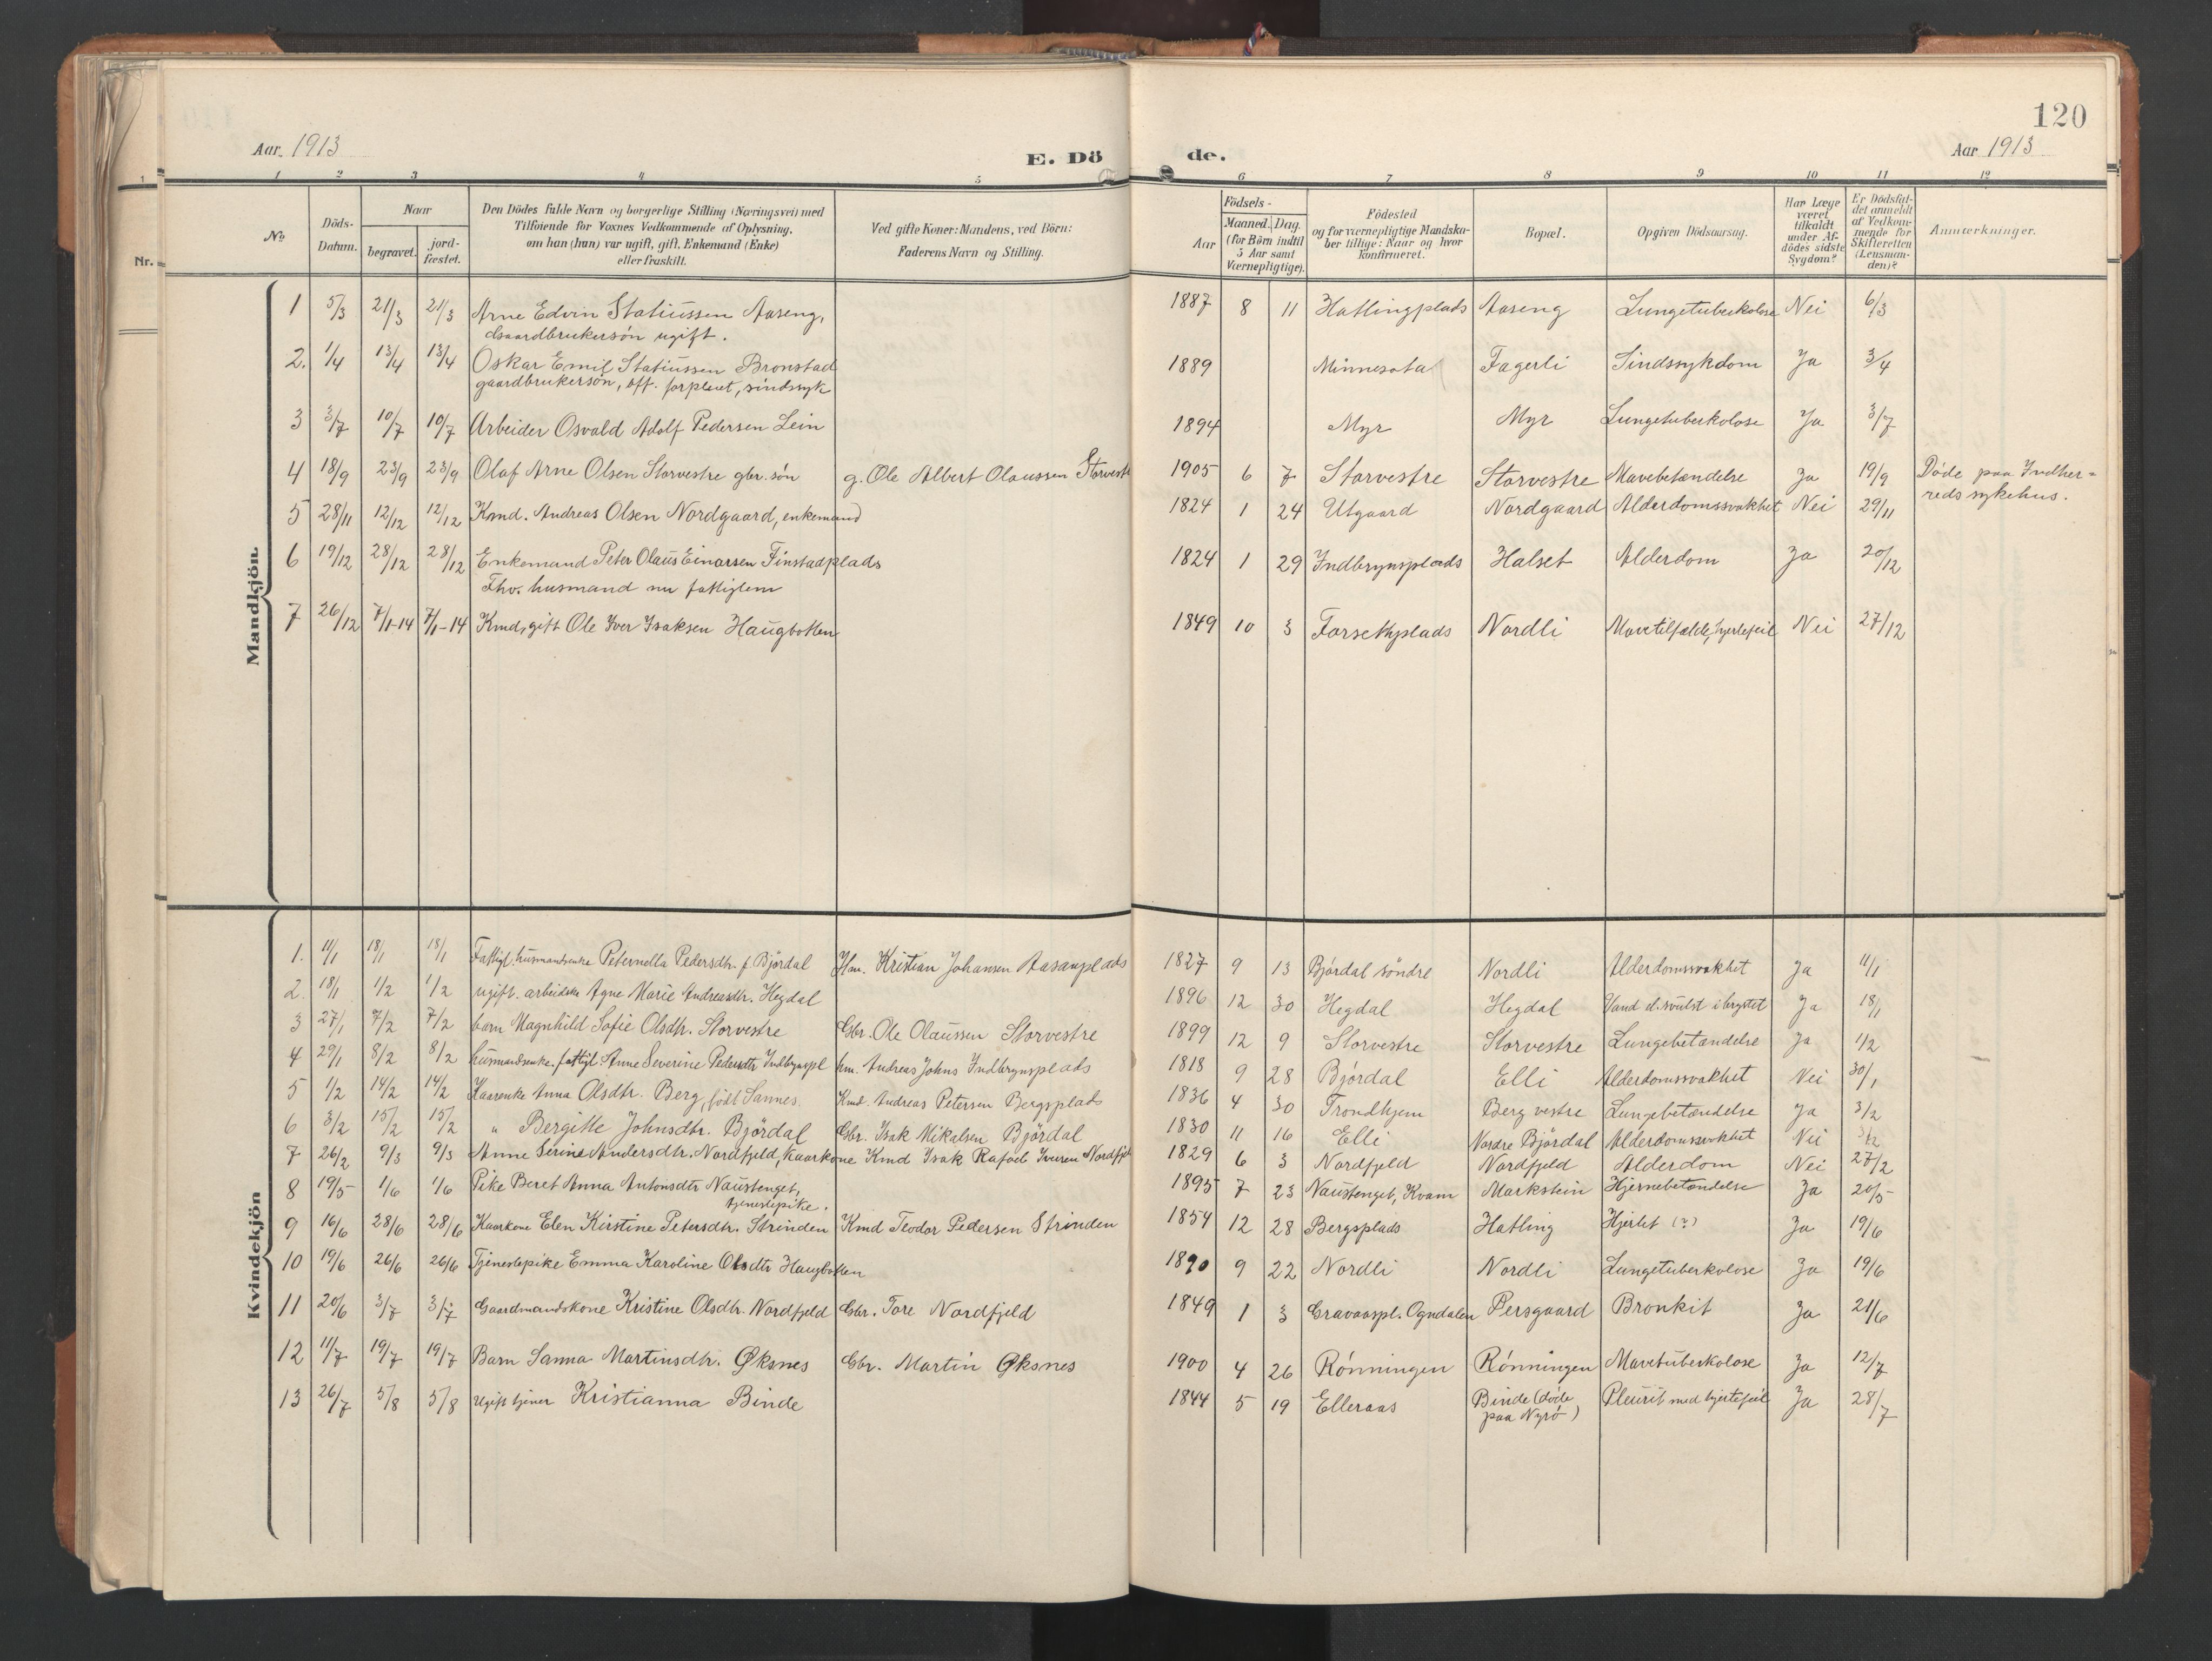 120
Aar 1913
E. Dö de.
Aar 1913
1 2 3 4 5 6 7 8 9 10 11 12
No
Döds-Datum.
Naar
begravet.
jord-fæstet.
Den Dödes fulde Navn og borgerlige Stilling (Næringsvei) med
Tilföiende for Voxnes Vedkommende af Oplysning,
om han (hun) var ugift, gift, Enkemand (Enke)
eller fraskilt.
Ved gifte Koner: Mandens, ved Börn:
Faderens Navn og Stilling.
Födsels-
Aar
Maaned. Dag.
(for Börn indtil
5 Aar samt
Værnepligtige).
Födested
og for værnepligtige Mandska-
ber tillige: Naar og hvor
konfirmeret.
Bopæl.
Opgiven Dödsaarsag.
Har Læge
været
tilkaldt
under Af-
dödes sidste
Sygdom?
Er Dödsfal-
det anmeldt
af Vedkom-
mende for
Skifteretten
(Lensman-
den)?
Anmærkninger.
Nr.
Mandkjön.
1 5/3 21/3 21/3 Arne Edvin Statiussen Aaseng, 1887 8 11 Hatlingplads Aaseng Lungetuberkolose Nei 6/3
gaardbrukersøn ugift.
2. 1/4 13/4 13/4 Oskar Emil Statiussen Bronstad 1889 Minnesota Fagerli Sindssykdom Ja 3/4
gaardbrukersøn, off. forpleiet, sindssyk
3 3/7 10/7 10/7 Arbeider Osvald Adolf Pedersen Lein 1894 Myr Myr Lungetuberkolose Ja 3/7
4 18/9 23/9 23/9 Olaf Arne Olsen Storvestre gbr. søn g. Ole Albert Olaussen Storvestre 1905 6 7 Storvestre Storvestre Mavebetændelse Ja 19/9 Døde paa Indher-
reds sykehus.
5 28/11 12/12 12/12 Kmd. Andreas Olsen Nordgaard, enkemand 1824 1 24 Utgaard Nordgaard Alderdomssvakhet Nei 29/11
6 19/12 28/12 28/12 Enkemand Peter Olaus Einarsen Finstadplads 1824 1 29 Indbrynsplads Halset Alderdom Ja 20/12
Fhv. husmand nu fattiglem
7 26/12 7/1-14 7/1-14 Kmd, gift Ole Iver Isaksen Haugbotten 1849 10 3 Forsethplads Nordli Mavetilfælde, hjertefeil Nei 27/12
Kvindekjön
1. 11/1 18/1 18/1 Fattigl. husmandsenke Peternella Pedersdtr. f. Bjørdal Hm. Kristian Johansen Aasanplads 1827 9 13 Bjørdal søndre Nordli Alderdomssvakhet Ja 11/1
2. 18/1 1/2 1/2 ugift. arbeiderske Agne Marie Andreasdtr. Hegdal 1896 12 30 Hegdal Hegdal Vand el. svulst i brystet Ja 18/1
3 27/1 7/2 7/2 barn Magnhild Sofie Olsdtr. Storvestre Gbr. Ole Olaussen Storvestre 1899 12 9 Storvestre Storvestre Lungebetændelse Ja 1/2
4 29/1 8/2 8/2 husmandsenke, fattigl. Anne Severine Pedersdtr Indbrynspl hm. Andreas Johns Indbrynsplads 1818 9 28 Bjørdal Elli Alderdomssvakhet Nei 30/1
5 1/2 14/2 14/2 Kaarenke Anna Olsdtr. Berg, født Sannes. Kmd. Andreas Petersen Bergsplads 1836 4 30 Trondhjem Berg vestre Lungebetændelse Ja 3/2
6 3/2 15/2 15/2 " Bergitte Johnsdtr. Bjørdal Gbr. Isak Mikalsen Bjørdal 1830 11 16 Elli Nordre Bjørdal Alderdomssvakhet Nei 3/2
7 26/2 9/3 9/3 Anne Serine Andersdtr. Nordfjeld, kaarkone Kmd Isak Rafael Iversen Nordfjeld 1829 6 3 Nordfjeld Nordfjeld Alderdom Nei 27/2
8 19/5 1/6 1/6 Pike Beret Anna Antonsdtr Naustenget, 1895 7 23 Naustenget, Kvam Markstein Hjernebetændelse Ja 20/5
tjenestepike.
9 16/6 28/6 28/6 Kaarkone Elen Kirstine Petersdtr. Strinden Kmd Teodor Pedersen Strinden 1854 12 28 Bergsplads Hatling Hjertet (?) Ja 19/6
10 19/6 26/6 26/6 Tjenestepike Emma Karoline Olsdtr Haugbotten 1890 9 22 Nordli Nordli Lungetuberkolose Ja 19/6
11 20/6 3/7 3/7 Gaardmandskone Kristine Olsdtr. Nordfjeld Gbr. Tore Nordfjeld 1849 1 3 Gravaaspl. Ogndalen Persgaard Bronkit Ja 21/6
12 11/7 19/7 19/7 Barn Sanna Martinsdtr. Øksnes Gbr. Martin Øksnes 1900 4 26 Rønningen Rønningen Mavetuberkolose Ja 12/7
13 26/7 5/8 5/8 Ugift tjener Kristianna Binde 1844 5 19 Elleraas Binde (døde Pleurit med hjertefeil Ja 28/7
paa Nyrø)